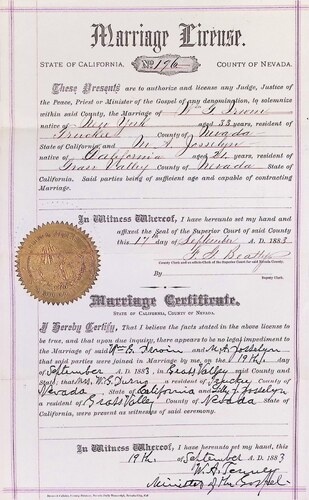 Marriage License.
STATE OF CALIFORNIA, No. 196 COUNTY OF NEVADA.
These Presents are to authorize and license any Judge, Justice of the
Peace, Priest or Minister of the Gospel of any denomination, to solemnize
within said County, the Marriage of Wm G. Irwin
native of New York aged 33 years, resident of
Truckee County of Nevada
State of California, and M. A. Josselyn
native of California aged 21 years, resident of
Grass Valley County of Nevada State of
California. Said parties being of sufficient age and capable of contracting
Marriage.
In Witness Whereof, I have hereunto set my hand and
affixed the Seal of the Superior Court of said County
this 17th day of September A. D. 1883
County Clerk and ex-officio Clerk of the Superior Court for said Nevada County.
By
Deputy Clerk.
Marriage Certificate.
STATE OF CALIFORNIA, COUNTY OF NEVADA.
I Hereby Certify, That I believe the facts stated in the above license to
be true, and that upon due inquiry, there appears to be no legal impediment to
the Marriage of said Wm G. Irwin and M. A. Josselyn
that said parties were joined in Marriage by me, on the 19th day
of September A. D. 1883, in Grass Valley County and
State; that Mrs. W. S. a resident of Truckee County of
Nevada State of California and Josselyn
a resident of Grass Valley County of Nevada State of
California, were present as witnesses of said ceremony.
In Witness Whereof, I have hereunto set my hand this
19th of September A. D. 1883
Minister of the Gospel